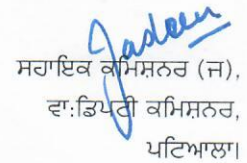 ਸਹਾਇਕ ਕਮਿਸ਼ਨਰ (ਜ),
ਵਾ:ਡਿਪਟੀ ਕਮਿਸ਼ਨਰ,
ਪਟਿਆਲਾ।